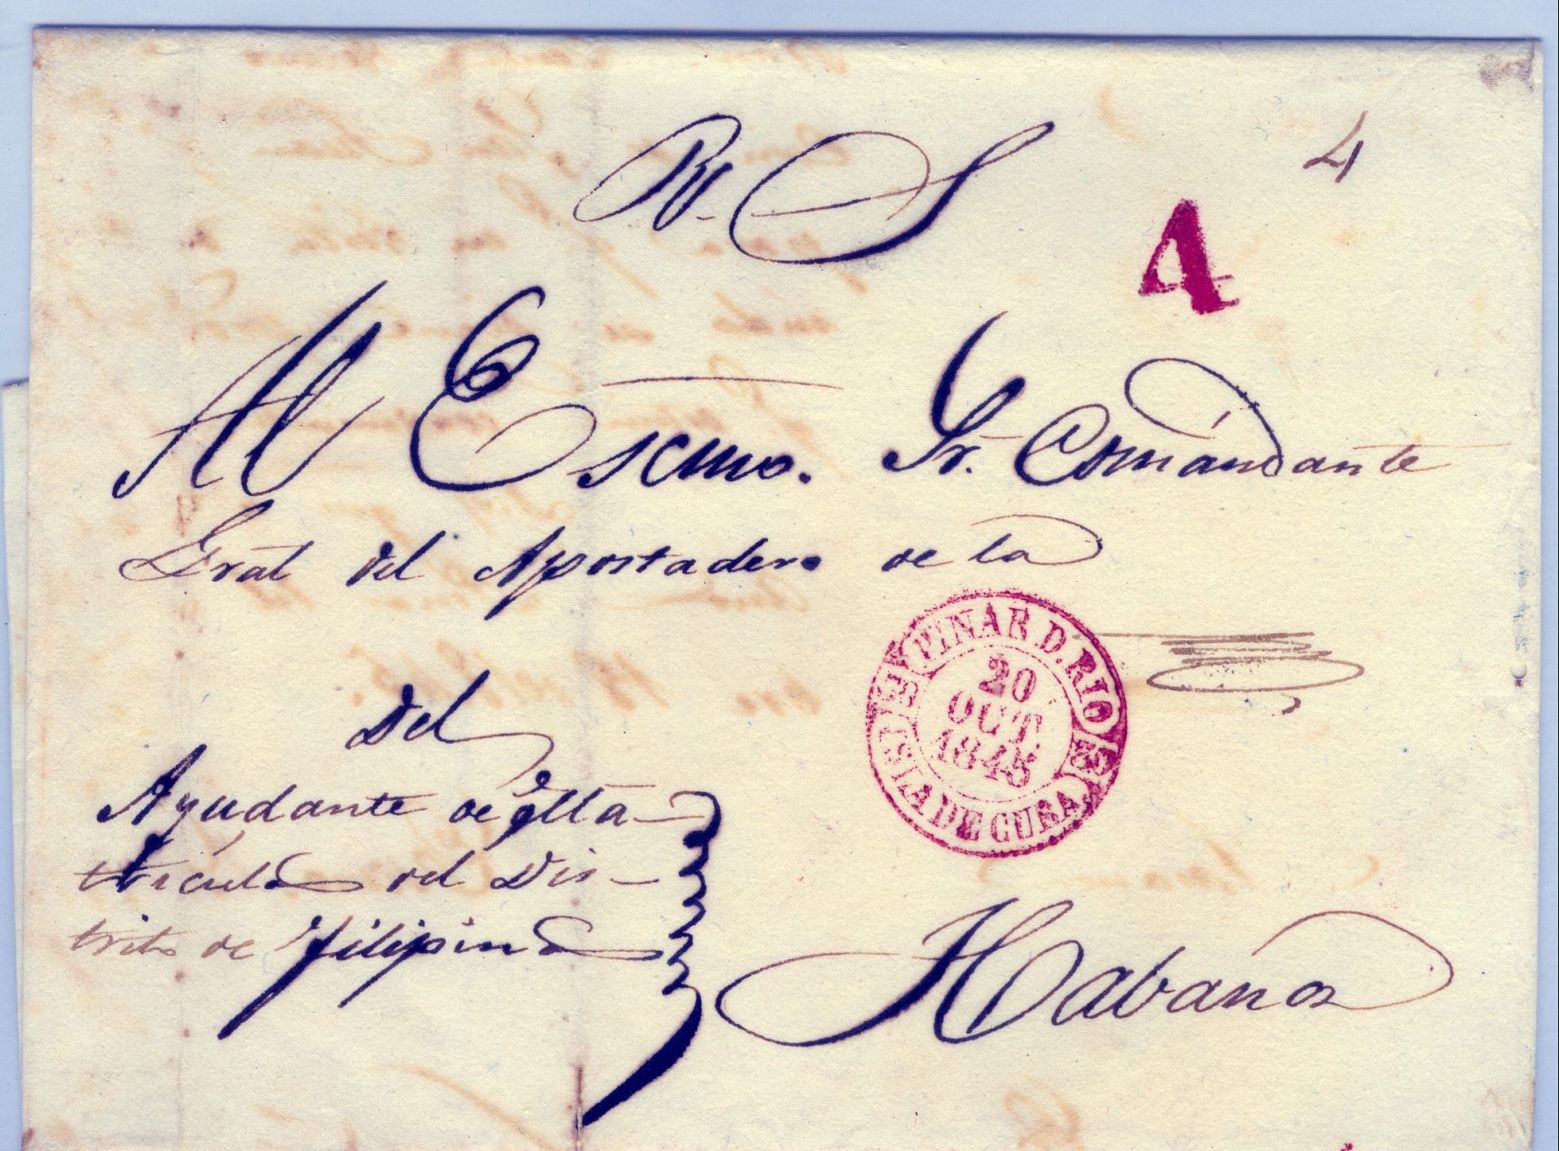 4
Rl. S
4
Al Escmo. Sr. Comandante
Gral del Apostadero de la
PINAR D. RIO
20
OCT.
1845
ISLA DE CUBA
Del
Ayudante de Ma-
trícula del Dis-
trito de Filipina
Habana